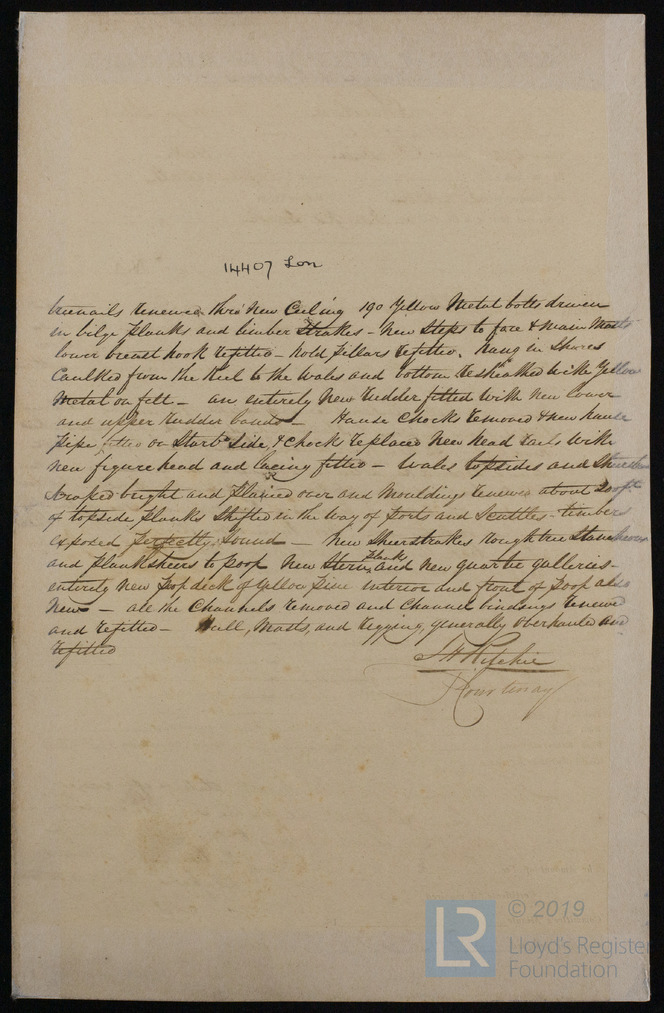 14407 Lon
treenails renewed thro' New Ceiling 190 Yellow Metal bolts driven
in bilge planks and limber Strakes – New Steps to fore & main Masts
lower breast hook refitted – hold Pillars refitted. hang in Shores
Caulked from the Keel to the Wales and bottom resheathed with Yellow
Metal on felt – an entirely New rudder fitted with new lower
and upper rudder bands – Hause Chocks removed & new hause
pipe fitted on Starbd Side, & chocks replaced New Head rails with
new figure head and lacing fitted – Wales topsides and
scraped bright and plained over and Mouldings renewed about 200 ft
of topside planks Shifted in the way of ports and Scuttles – timbers
exposed perfectly Sound – New Sheerstrakes roughtree Stancheons
and plank sheers to poop New Stern plank and new quarter galleries –
entirely new Poop deck of Yellow Pine interior and front of Poop also
New – all the Channels removed and Channel bindings renewed
and refitted – Hull, Masts, and rigging, generally overhauled and
refitted
Ritchie
Courtenay
© 2019
LR
Lloyd's Register
Foundation